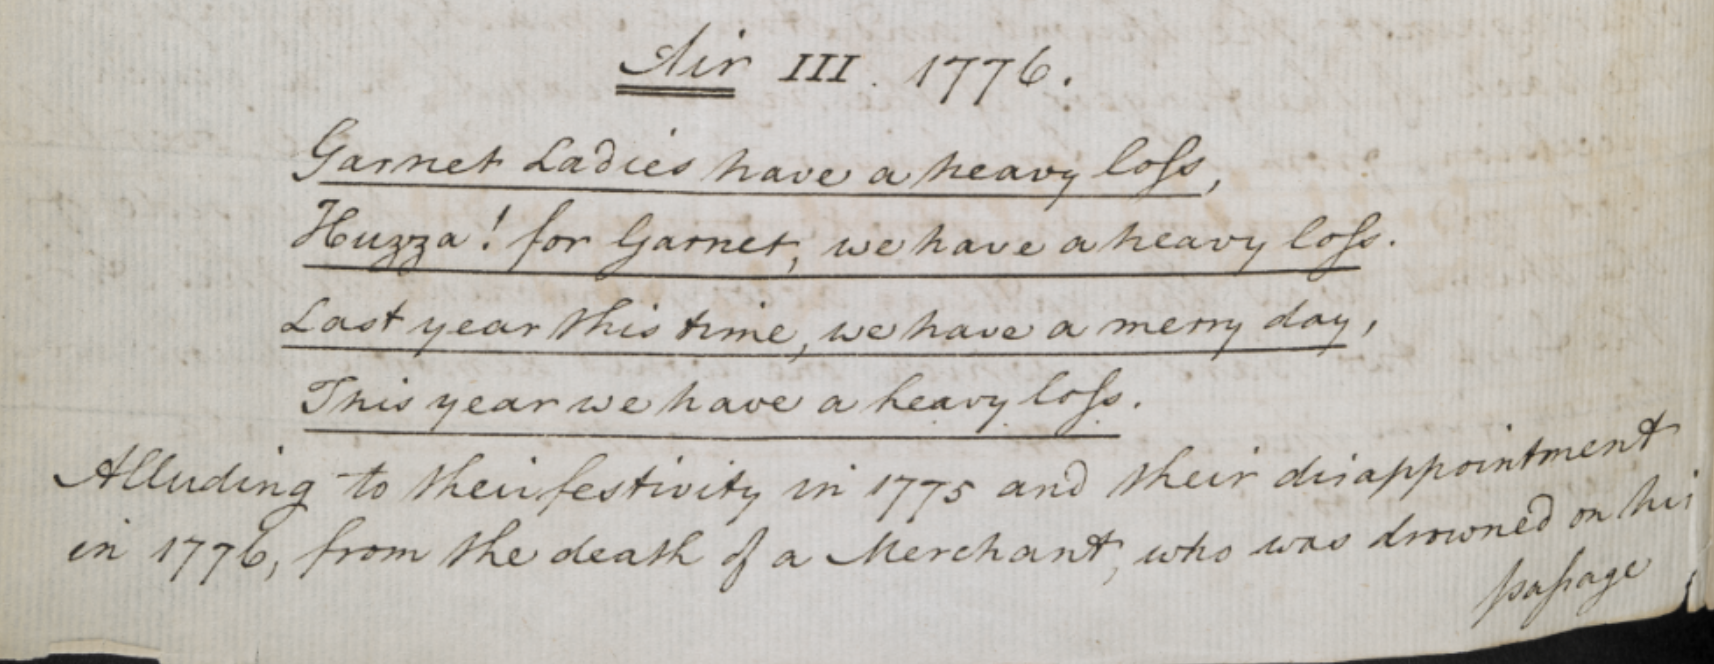 Air III. 1776.
Garnet Ladies have a heavy loſs,
Huzza! for Garnet, we have a heavy loſs.
Last year this time, we have a merry day,
This year we have a heavy loſs.
Alluding to their festivity in 1775 and their disappointment
in 1776, from the death of a Merchant, who was drowned on his
paſsage